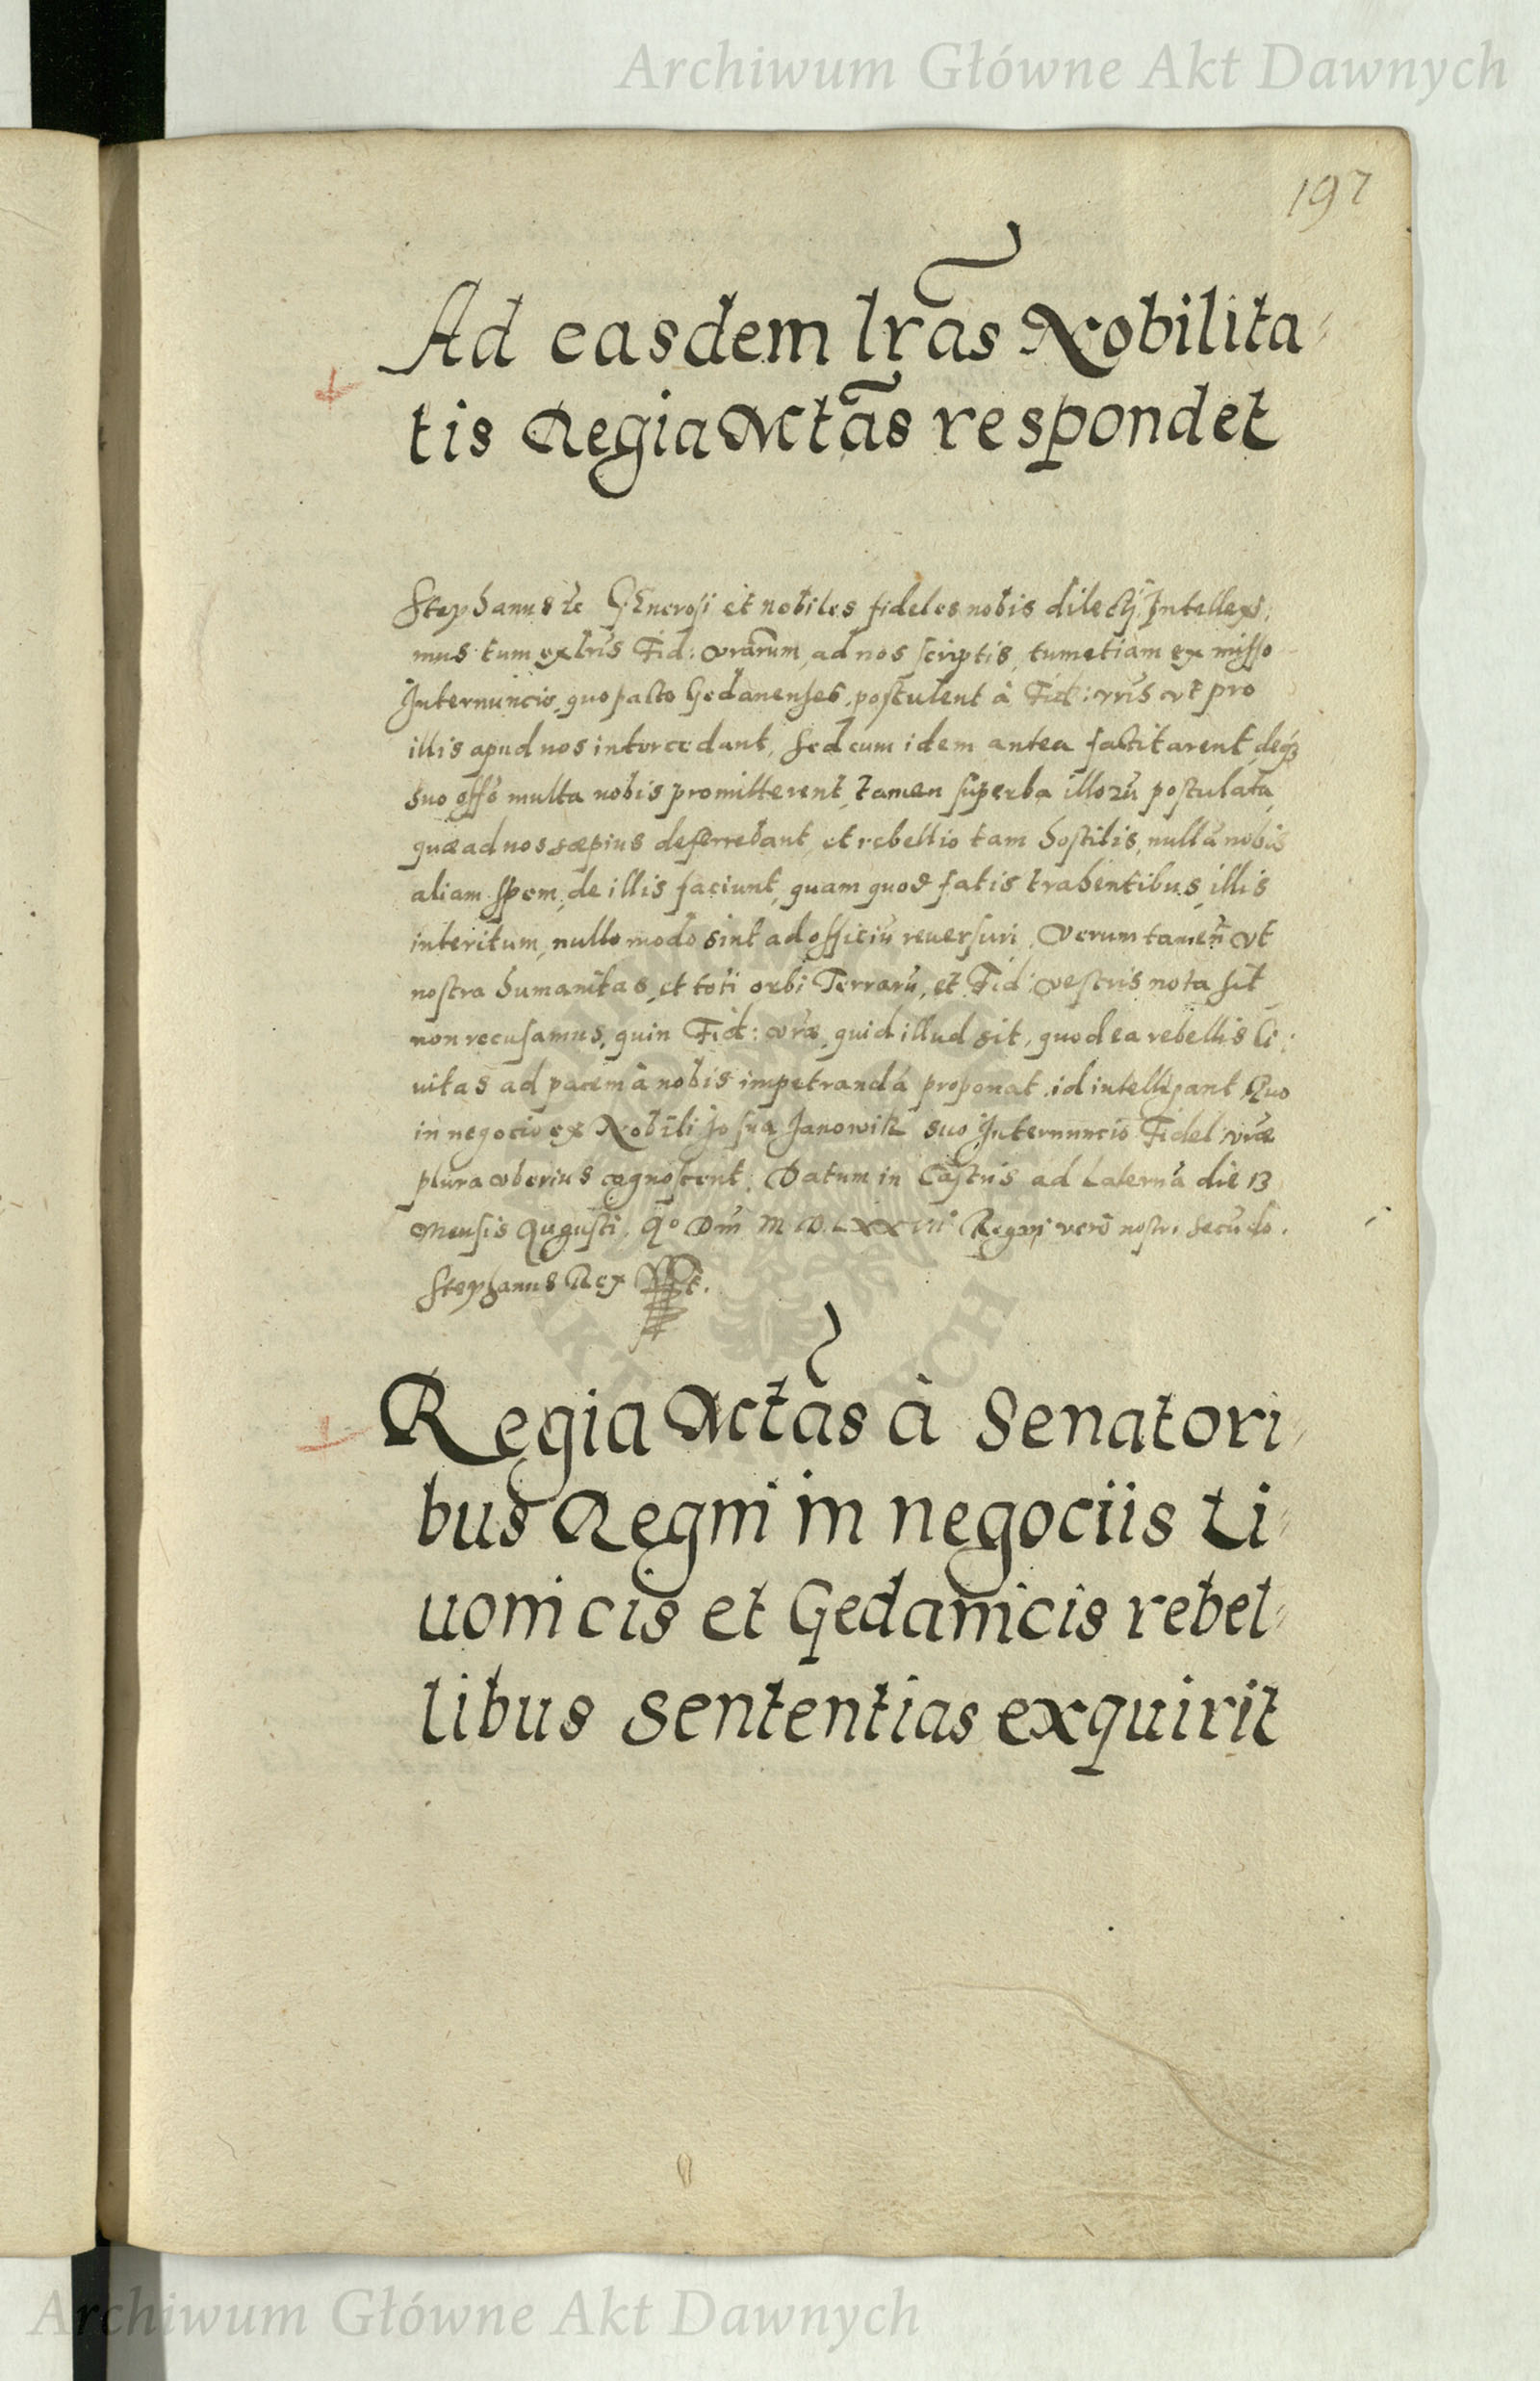 Archiwum Główne Akt Dawnych
197
Ad easdem lr̃as Nobilita-
tis Regia Mctãs respondet
Stephanus etc GEnerosi et nobiles fideles nobis dilectij Intellexi,
mus tum ex lr̃is Fid: vrãrum ad nos scriptis, tumetiam ex misso
Internuncio, quo pacto Gedanenses, postulent à Fid: vr̃is vt pro
illis apud nos intercedant, Sed cum idem antea factitarent, deq́ȝ
suo offõ multa nobis promitterent, tamen superba illorũ postulata,
quæ ad nos sæpius deferrebant, et rebellio tam hostilis, nullã nobis
aliam spem, de illis faciunt, quam quod fatis trahentibus, illis
interitum, nullo modo sint ad officiũ reuersuri, Verum tamen vt
nostra humanitas, et toti orbi Terrarũ, et Fid: vestris nota sit
non recusamus, quin Fid: vræ, quid illud sit, quod ea rebellis Ci:
uitas ad pacem à nobis impetrandã proponat, id intelligant Quo
in negocio ex Nobili Josua Janowik suo Internuncio Fidel: vræ
plura vberius cognoscent. Datum in Castris ad Laternã die 13
Mensis Augusti. Aº Dnĩ M D. LXXVII Regni verò nostri secũdo.
Stephanus Rex
Regia Mctãs à Senatori-
bus Regni in negociis Li-
uonicis et Gedanicis rebel-
libus sententias exquirit
Archiwum Główne Akt Dawnych